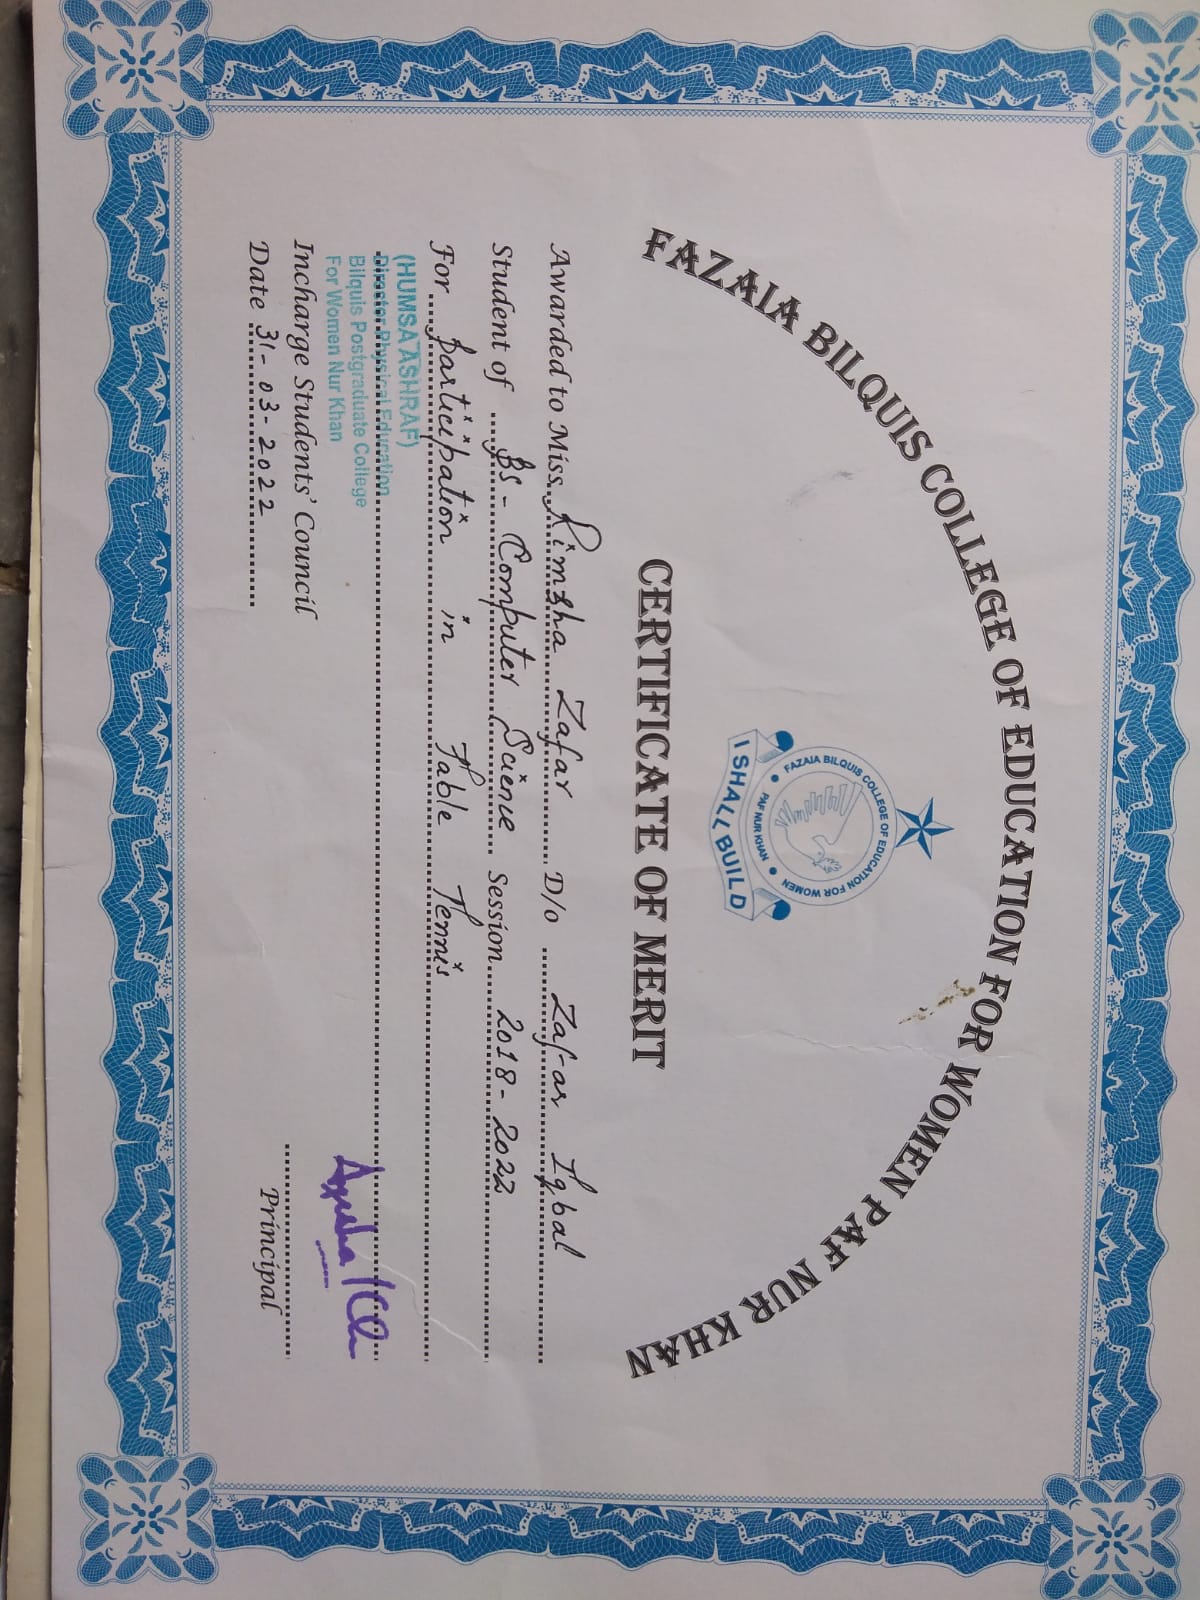 FAZAIA BILQUIS COLLEGE OF EDUCATION FOR WOMEN PAF NUR KHAN
FAZAIA BILQUIS COLLEGE OF EDUCATION FOR WOMEN
PAF NUR KHAN
I SHALL BUILD
CERTIFICATE OF MERIT
Awarded to Miss Rimsha Zafar D/o Zafar Iqbal
Student of BS - Computer Science Session 2018 - 2022
For participation in Table Tennis
(HUMSA ASHRAF)
Director Physical Education
Bilquis Postgraduate College
For Women Nur Khan
Incharge Students' Council
Principal
Date 31-03-2022